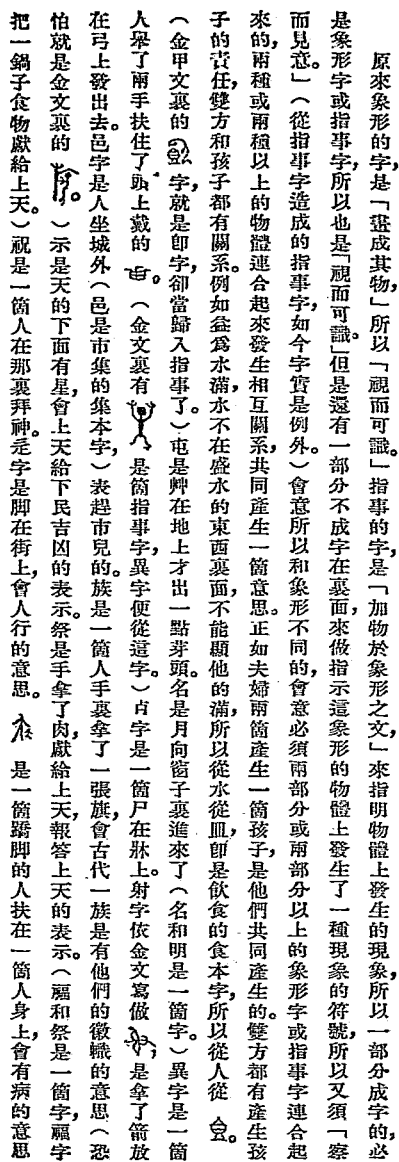 原來象形的字，是「畫成其物，」所以「視而可識。」指事的字，是「加物於象形之文，」來指明物體上發生的現象，所以一部分成字的，必
是象形字或指事字，所以也是「視而可識。」但是還有一部分不成字在裏面，來做指示這象形的物體上發生了一種現象的符號，所以又須「察
而見意。」（從指事字造成的指事字，如今字實是例外。）會意所以和象形不同的，會意必須兩部分或兩部分以上的象形字或指事字連合起
來的，兩種或兩種以上的物體連合起來發生相互關系，共同產生一箇意思。正如夫婦兩箇產生一箇孩子，是他們共同產生的。雙方都有產生孩
子的責任，雙方和孩子都有關系。例如益爲水滿，水不在盛水的東西裏面，不能顯他的滿，所以從水從皿，卽是飮食的食本字，所以從人從
（金甲文裏的字，就是卽字，卻當歸入指事了。）屯是艸在地上才出一點芽頭。名是月向窗子裏進來了（名和明是一箇字。）異字是一箇
人舉了兩手扶住了頭上戴的（金文裏有是箇指事字，異字便從這字。）𣦸字是一箇尸在牀上。射字依金文寫做是拿了箭放
在弓上發出去。邑字是人坐城外（邑是市集的集本字，）表趕市兒的。族是一箇人手裏拿了一張旗，會古代一族是有他們的徽幟的意思（恐
怕就是金文裏的）示是天的下面有星，會上天給下民吉凶的表示。祭是手拿了肉，獻給上天，報答上天的表示。（福和祭是一箇字，福字
把一鍋子食物獻給上天。）祝是一箇人在那裏拜神。辵字是脚在街上，會人行的意思。是一箇蹻脚的人扶在一箇人身上，會有病的意思